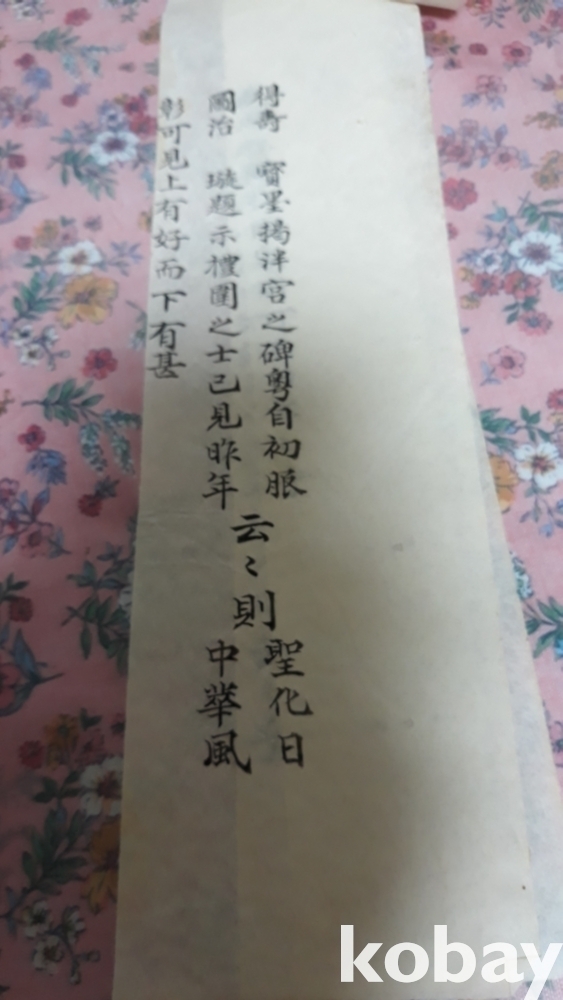 得壽 寶墨揭泮宮之碑粤自初服
國治 璇題示禮圍之士已見昨年
云〻則
聖化日
中華風
彰可見上有好而下有甚
kobay